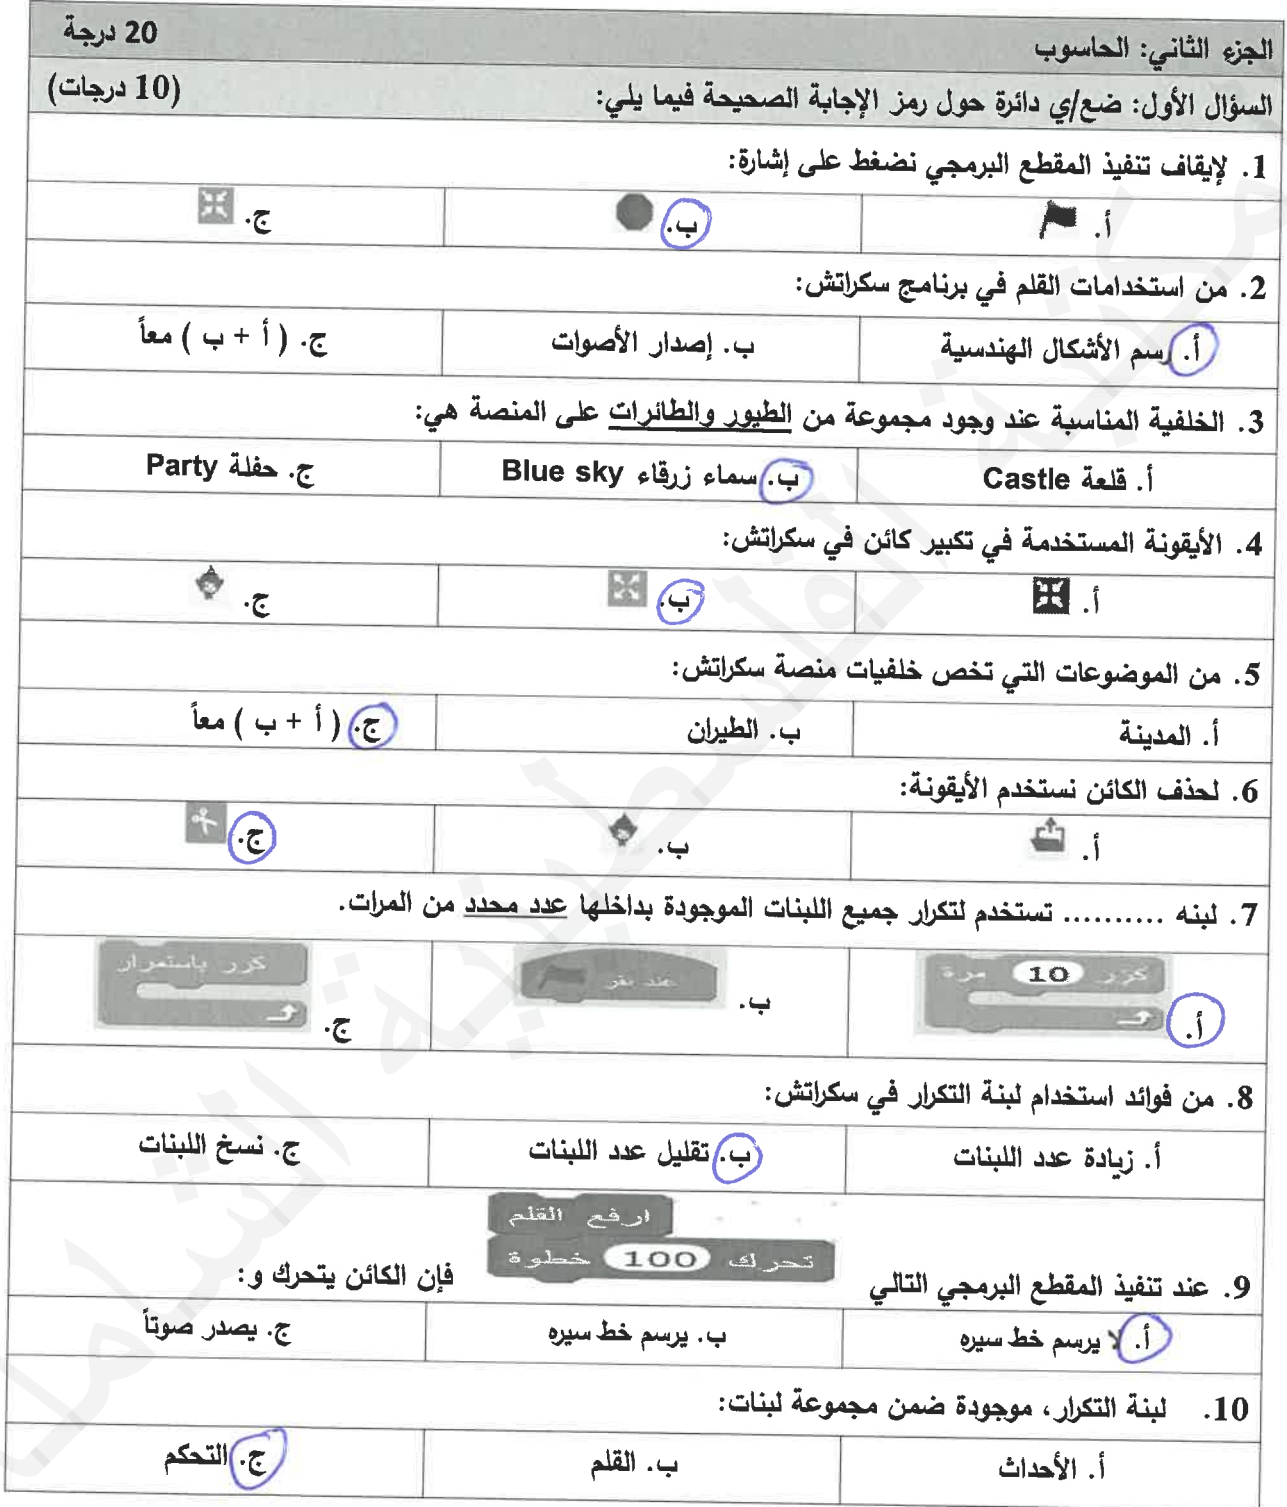 الجزء الثاني: الحاسوب 20 درجة
السؤال الأول: ضع/ي دائرة حول رمز الإجابة الصحيحة فيما يلي: (10 درجات)
1. لإيقاف تنفيذ المقطع البرمجي نضغط على إشارة:
أ. ب. ج.
2. من استخدامات القلم في برنامج سكراتش:
أ. رسم الأشكال الهندسية ب. إصدار الأصوات ج. ( أ + ب ) معاً
3. الخلفية المناسبة عند وجود مجموعة من الطيور والطائرات على المنصة هي:
أ. قلعة Castle ب. سماء زرقاء Blue sky ج. حفلة Party
4. الأيقونة المستخدمة في تكبير كائن في سكراتش:
أ. ب. ج.
5. من الموضوعات التي تخص خلفيات منصة سكراتش:
أ. المدينة ب. الطيران ج. ( أ + ب ) معاً
6. لحذف الكائن نستخدم الأيقونة:
أ. ب. ج.
7. لبنه .......... تستخدم لتكرار جميع اللبنات الموجودة بداخلها عدد محدد من المرات.
كرّر 10 مرة عند نقر كرر باستمرار
أ. ب. ج.
8. من فوائد استخدام لبنة التكرار في سكراتش:
أ. زيادة عدد اللبنات ب. تقليل عدد اللبنات ج. نسخ اللبنات
ارفع القلم
تحرك 100 خطوة
9. عند تنفيذ المقطع البرمجي التالي فإن الكائن يتحرك و:
أ. لا يرسم خط سيره ب. يرسم خط سيره ج. يصدر صوتاً
10. لبنة التكرار، موجودة ضمن مجموعة لبنات:
أ. الأحداث ب. القلم ج. التحكم